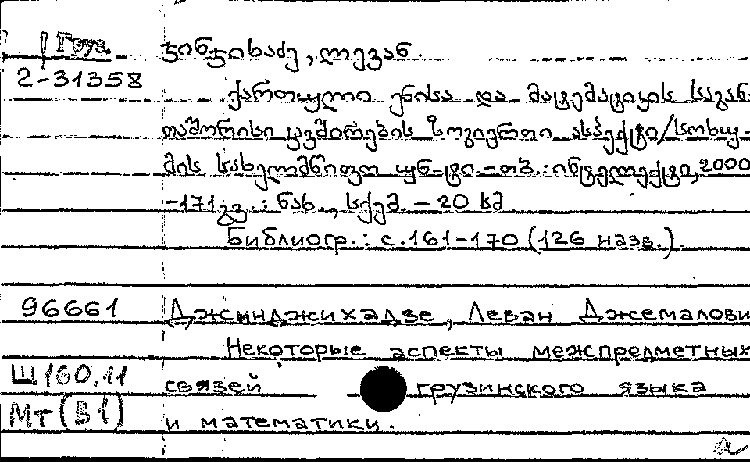 ჯინჯიხაძე, ლევან.
2-31358
ქართული ენისა და მატემატიკის საგან-
თაშორისი კავშირების ზოგიერთი ასპექტი/სოხუ-
მის სახელმწიფო უნ-ტი.-თბ.:ინტელექტი,2000
-171გვ.:ნახ., სქემ. - 20 სმ
Библиогр.: с.161-170 (126 назв.).
96661 Джинджихадзе, Леван Джемалови
Некоторые аспекты межпредметных
Ш160.11 связей грузинского языка
Мт(31) и математики.